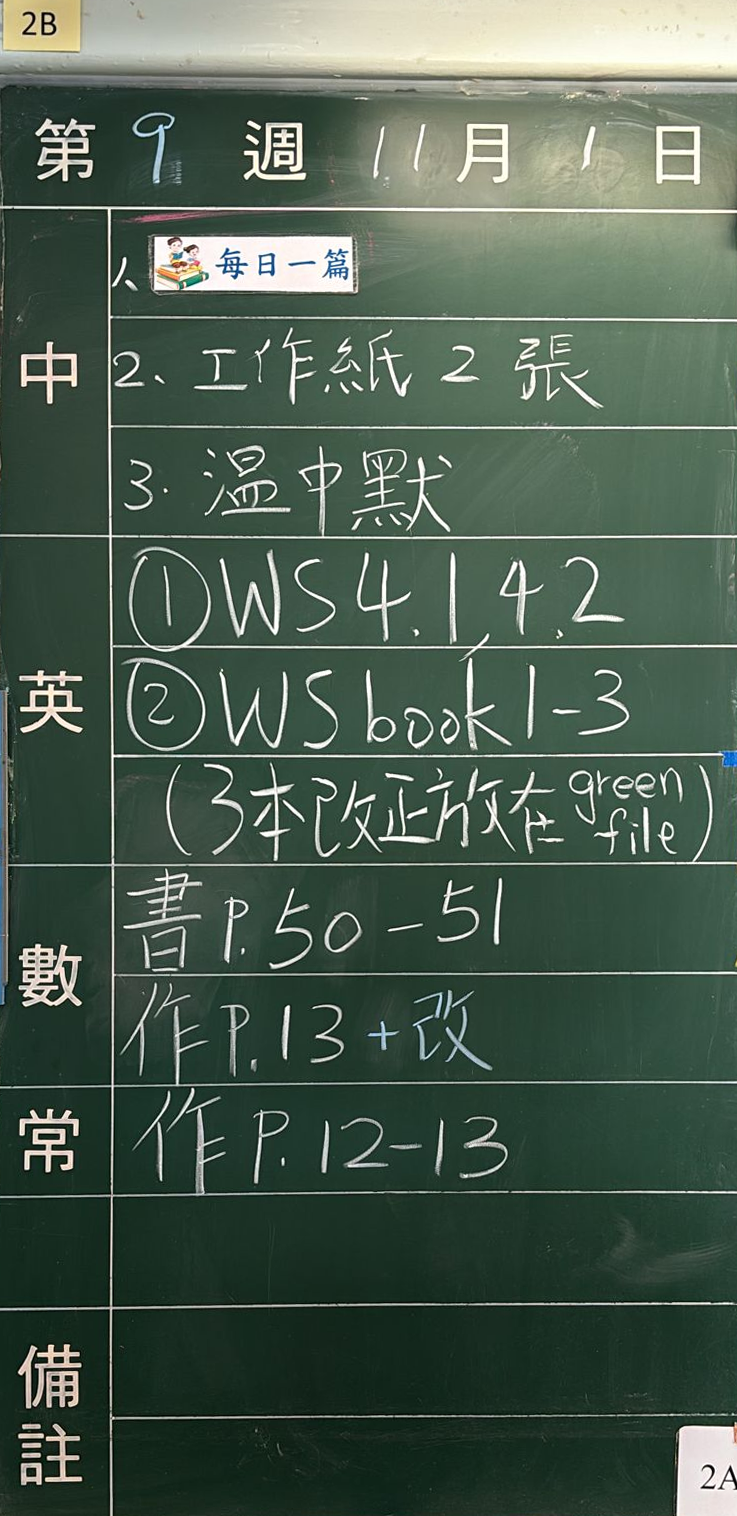 2B
第 9 週 11 月 1 日
中
1、每日一篇
2、工作紙 2 張
3. 溫中默
英
① WS 4.1, 4.2
② WS book 1-3
(3本改正放在 green file)
數
書 P. 50-51
作 P. 13 + 改
常
作 P. 12-13
備註
2A